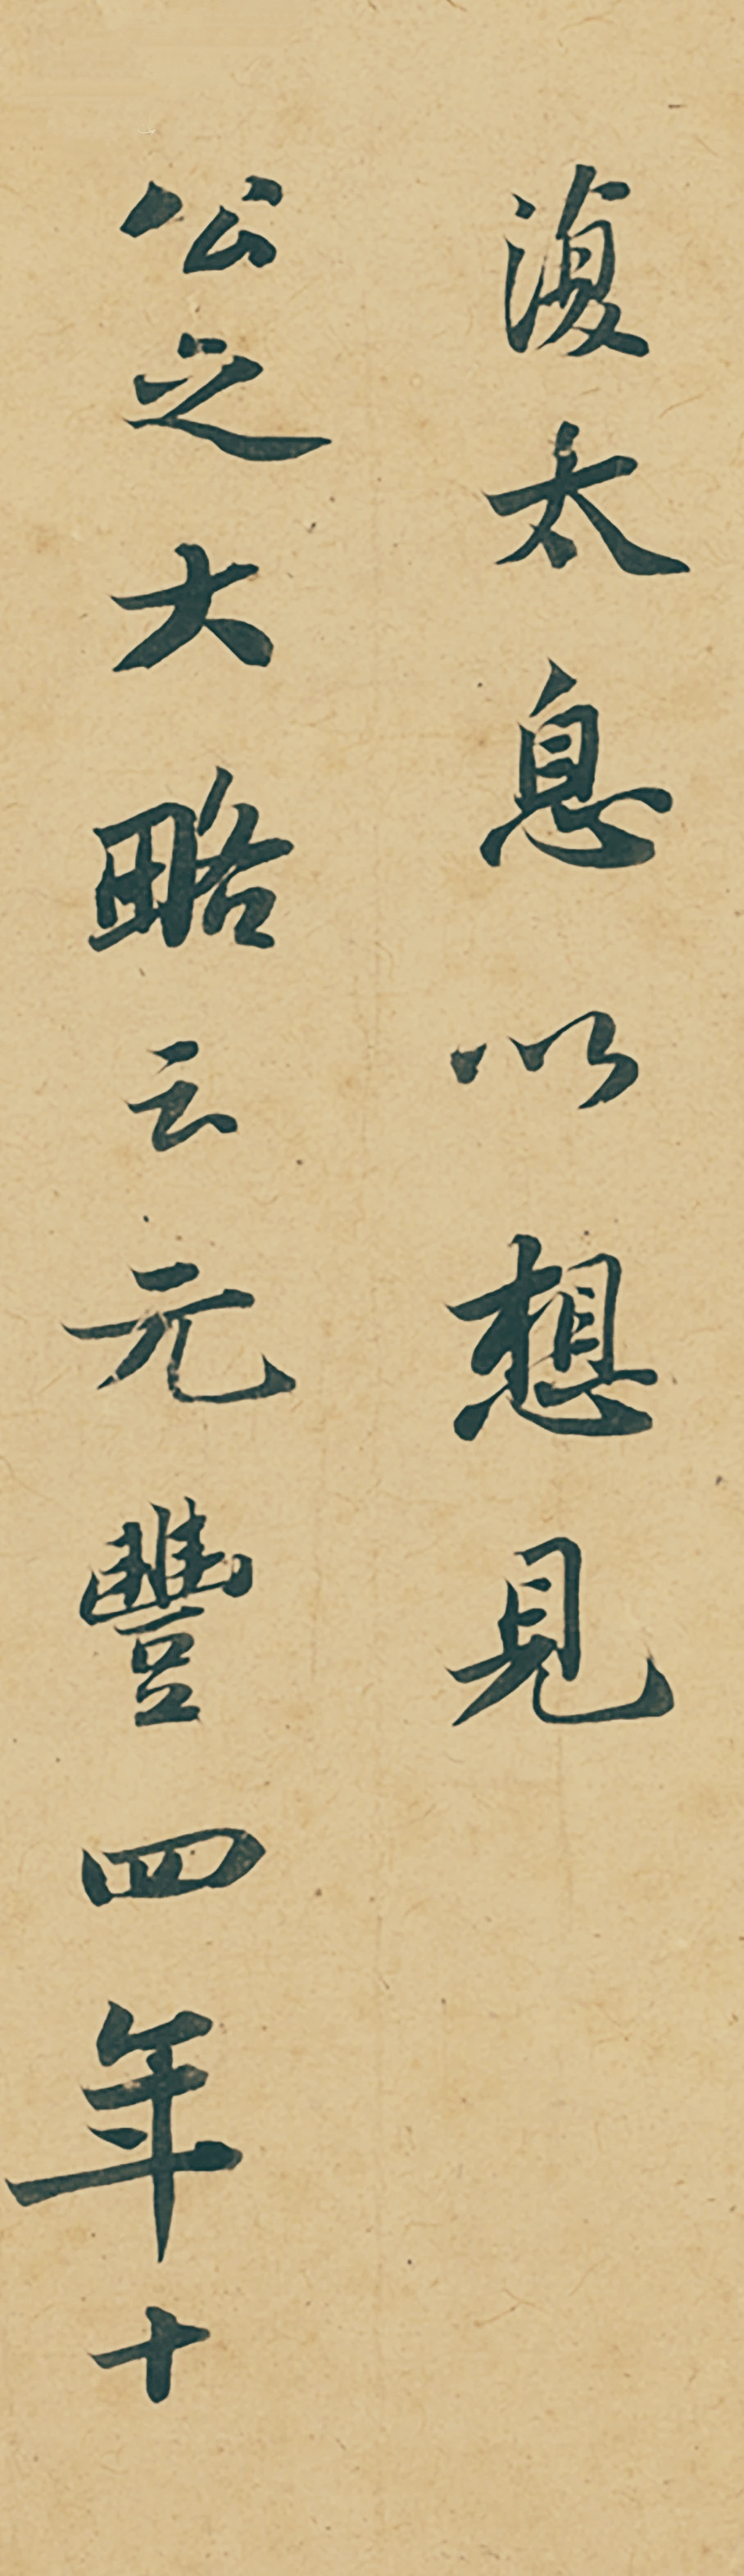 復太息以想見
公之大略云元豐四年十